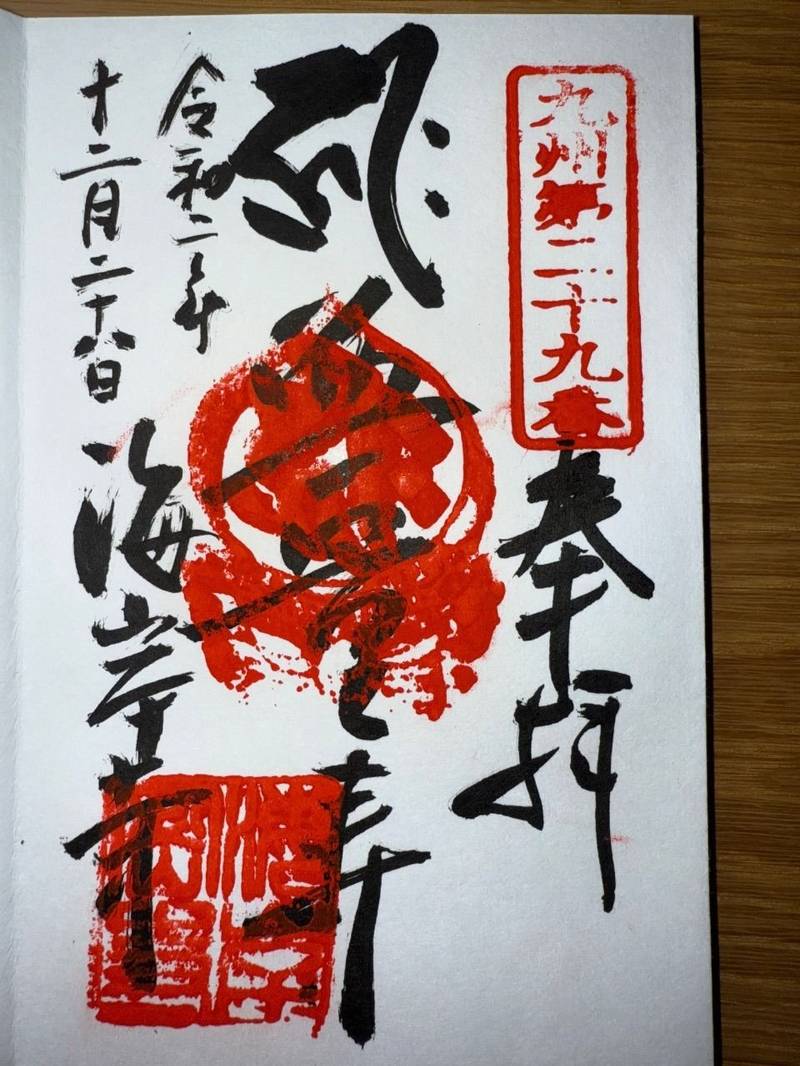 九州第二十九番
奉拝
無量寿
令和二年
十二月二十八日
海岸寺